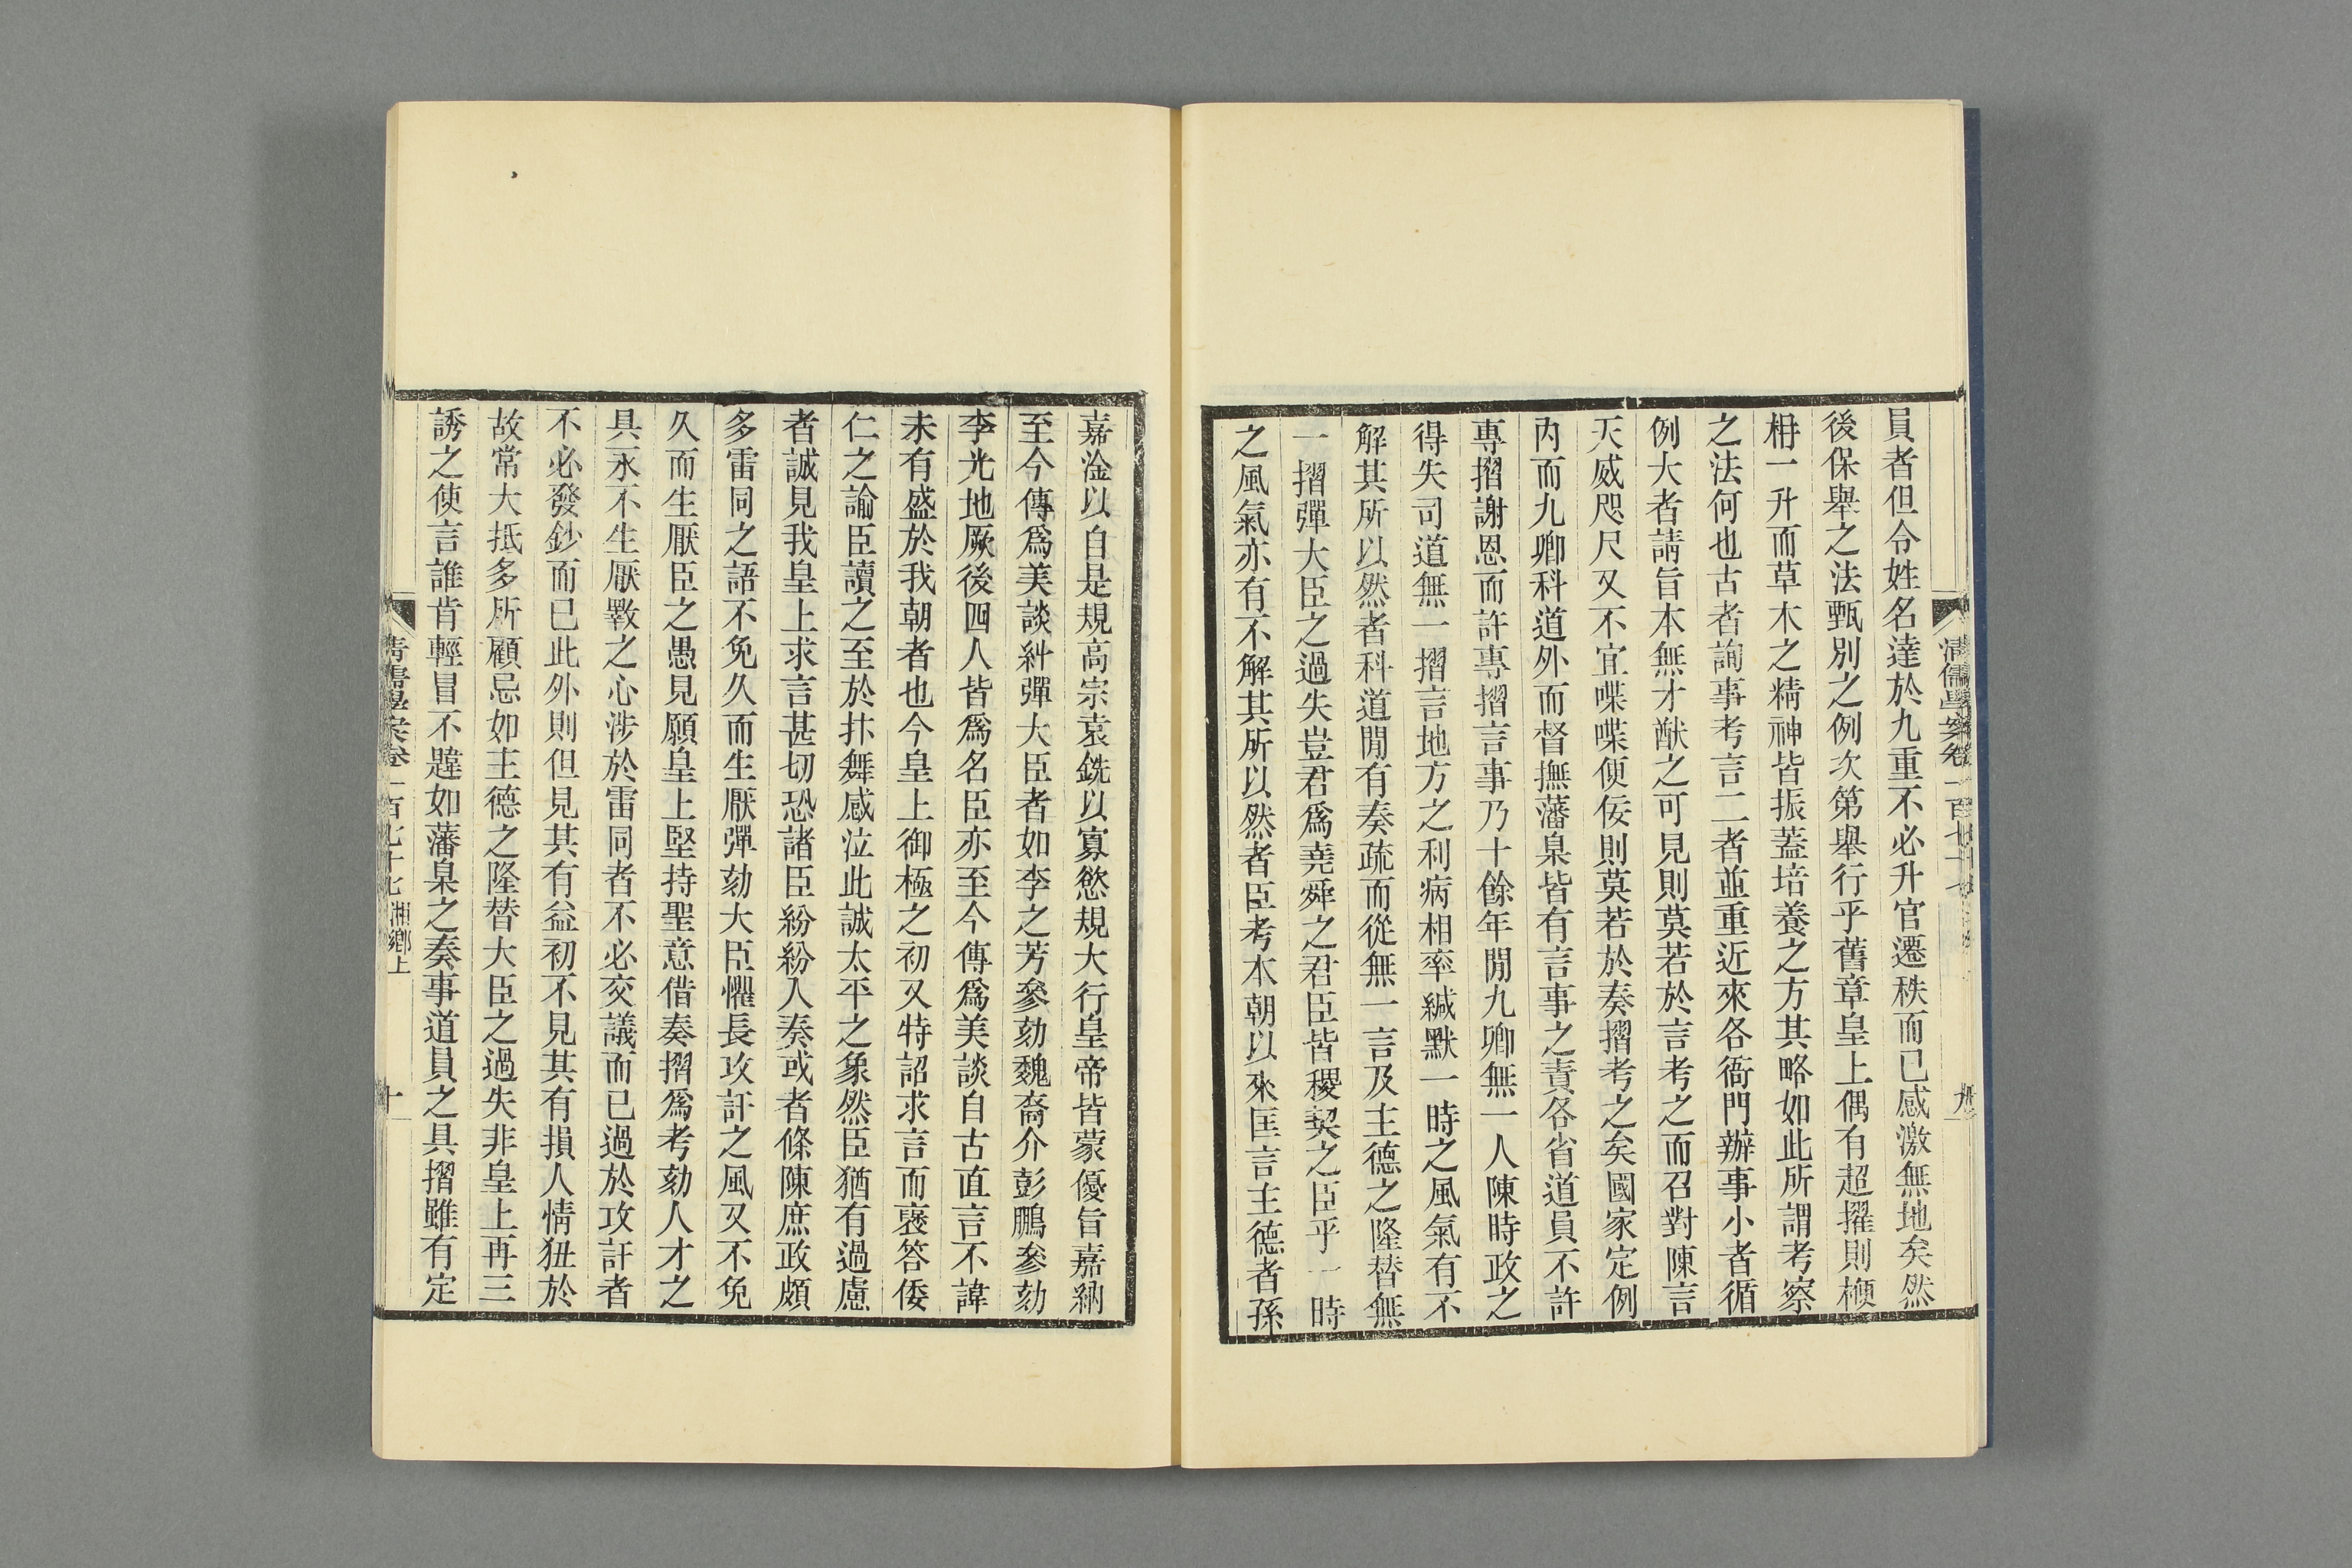 員者但令姓名達於九重不必升官遷秩而已感激無地矣然
後保舉之法甄別之例次第舉行乎舊章皇上偶有超擢則梗
枏一升而草木之精神皆振蓋培養之方其略如此所謂考察
之法何也古者詢事考言二者並重近來各衙門辦事小者循
例大者請旨本無才猷之可見則莫若於言考之而召對陳言
天威咫尺又不宜喋喋便佞則莫若於奏摺考之矣國家定例
內而九卿科道外而督撫藩臬皆有言事之責各省道員不許
專摺謝恩而許專摺言事乃十餘年閒九卿無一人陳時政之
得失司道無一摺言地方之利病相率緘默一時之風氣有不
解其所以然者科道閒有奏疏而從無一言及主德之隆替無
一摺彈大臣之過失豈君爲堯舜之君臣皆稷契之臣乎一時
之風氣亦有不解其所以然者臣考本朝以來匡言主德者孫
嘉淦以自是規高宗袁銑以寡慾規大行皇帝皆蒙優旨嘉納
至今傳爲美談糾彈大臣者如李之芳參劾魏裔介彭鵬參劾
李光地厥後四人皆爲名臣亦至今傳爲美談自古直言不諱
未有盛於我朝者也今皇上御極之初又特詔求言而褒答倭
仁之諭臣讀之至於抃舞感泣此誠太平之象然臣猶有過慮
者誠見我皇上求言甚切恐諸臣紛紛入奏或者條陳庶政頗
多雷同之語不免久而生厭彈劾大臣懼長攻訐之風又不免
久而生厭臣之愚見願皇上堅持聖意借奏摺爲考劾人才之
具永不生厭斁之心涉於雷同者不必交議而已過於攻訐者
不必發鈔而已此外則但見其有益初不見其有損人情狃於
故常大抵多所顧忌如主德之隆替大臣之過失非皇上再三
誘之使言誰肯輕冒不韙如藩臬之奏事道員之具摺雖有定
清儒學案卷一百七十七 湘鄉上
十